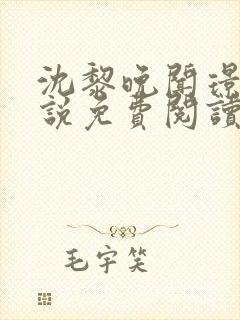 沈黎晚聞璟
說免費閱讀
毛宇笑